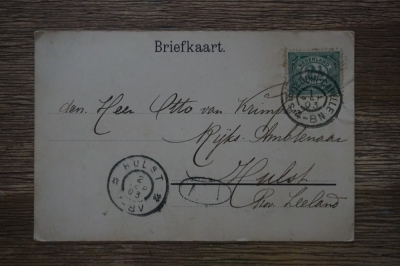 Briefkaart.
den Heer Otto van Krimpen
Rijks-Ambtenaar
Hulst
Prov. Zeeland
HULST